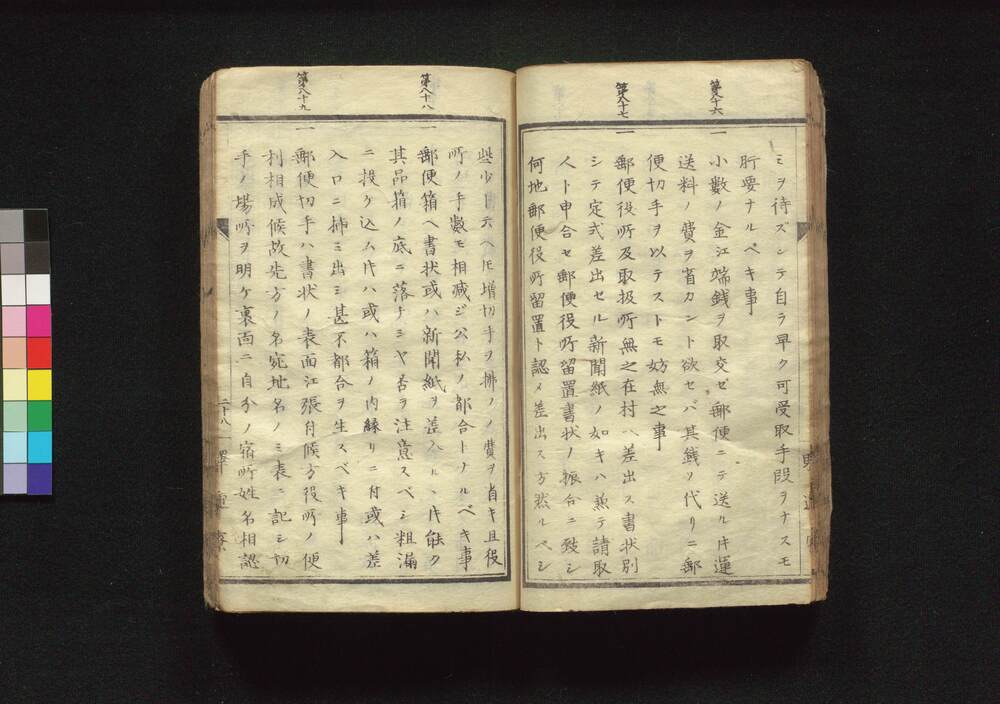 ミヲ待ズシテ自ラ早ク可受取手段ヲナスモ
肝要ナルベキ事
第八十六
一 小數ノ金江端銭ヲ取交ゼ郵便ニテ送ル片運
送料ノ費ヲ省カント欲セバ其銭ノ代リニ郵
便切手ヲ以テストモ妨無之事
第八十七
一 郵便役所及取扱所無之在村ヘ差出ス書状別
シテ定式差出セル新聞紙ノ如キハ兼テ請取
人ト申合セ郵便役所留置書状ノ振合ニ致シ
何地郵便役所留置ト認メ差出ス方然ルベシ
些少ト云ヘ𪜈増切手ヲ拂ノノ費ヲ省キ且役
所ノ手數モ相減ジ公私ノ都合トナルベキ事
第八十八
一 郵便箱ヘ書状或ハ新聞紙ヲ差入ルヽ片能ク
其品箱ノ底ニ落チシヤ否ヲ注意スベシ粗漏
ニ投ケ込ム片ハ或ハ箱ノ内縁リニ付或ハ差
入口ニ挿ミ出シ甚不都合ヲ生スベキ事
第八十九
一 郵便切手ハ書状ノ表面江張付候方役所ノ便
利相成候故先方ノ名宛地名ノミ表ニ記シ切
手ノ場所ヲ明ケ裏面ニ自分ノ宿所姓名相認
二十八
驛逓寮